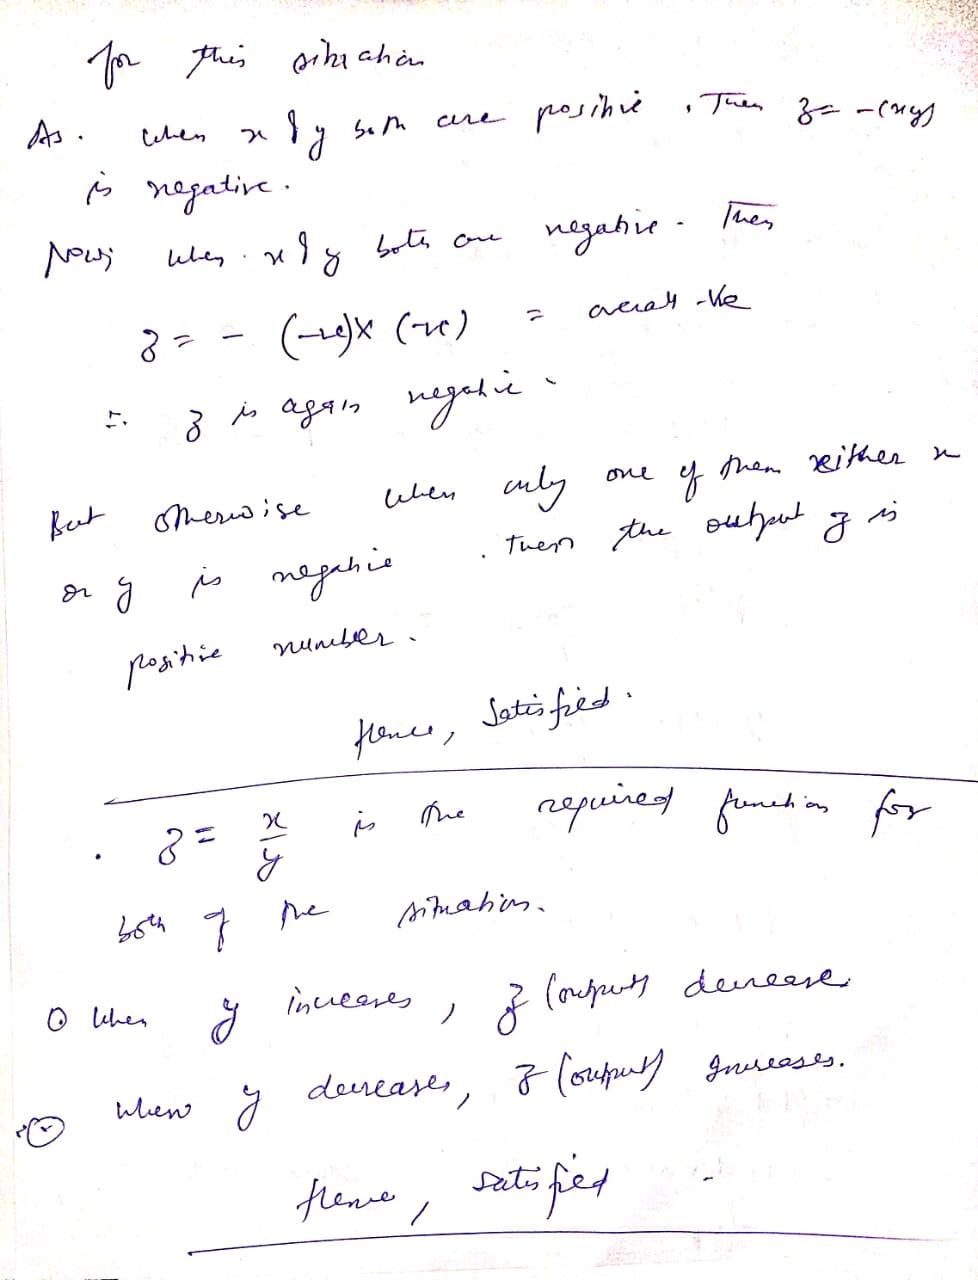 for this situation
As. when x & y both are positive, Then z = -(xy)
is negative.
Now; when x & y both are negative. Then
z = - (-ve) x (-ve) = overall -ve
∴ z is again negative.
But otherwise when only one of them either x
or y is negative. Then the output z is
positive number.
Hence, Satisfied.
. z = x/y is the required function for
both of the situation.
① When y increases, z (output) decrease
② When y decreases, z (output) Increases.
Hence, satisfied